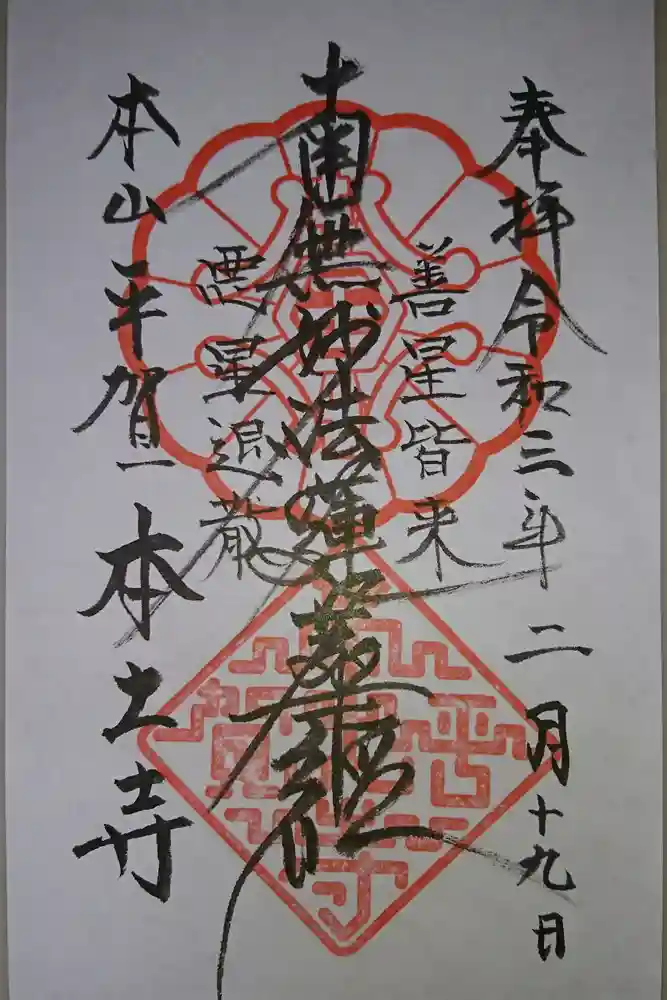 奉拝令和三年二月十九日
善星皆来
南無妙法蓮華経
悪星退散
本山平賀
本土寺